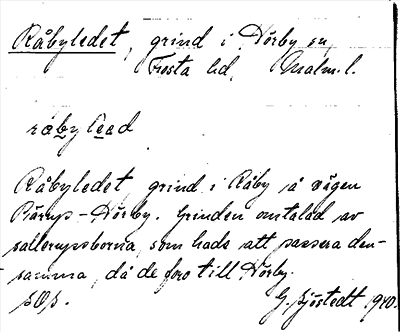 Råbyledet, grind i Hörby sn,
Frosta hd, Malm. l.
råby lead
Råbyledet, grind i Råby på vägen
Pärup-Hörby. Grinden omtalad av
sallerupsborna, som hade att passera den-
samma, då de foro till Hörby.
G. Sjöstedt 1940.